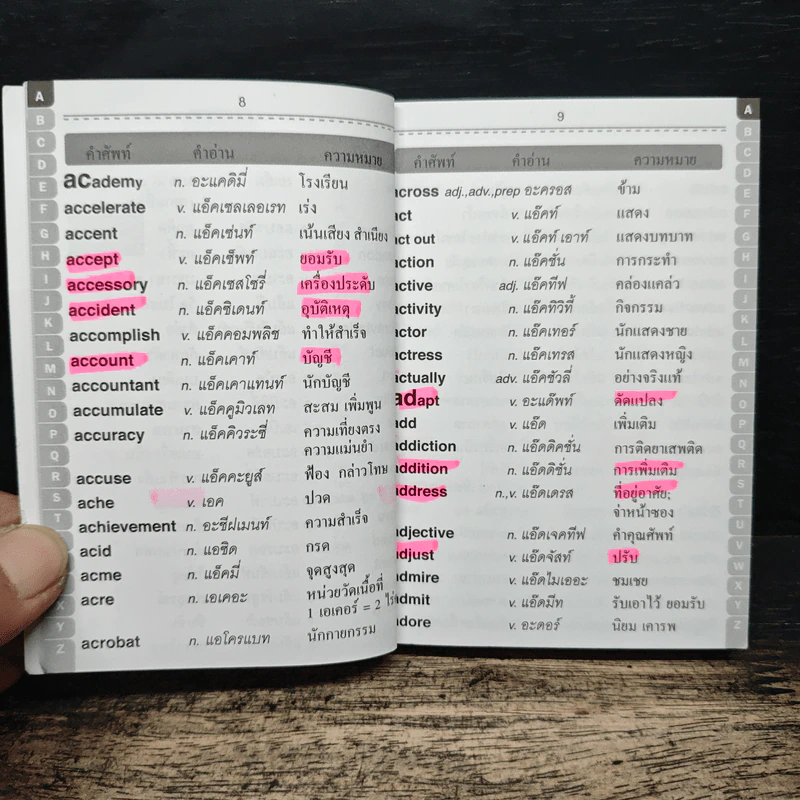 8
คำศัพท์ คำอ่าน ความหมาย
academy n. อะแคดิมี่ โรงเรียน
accelerate v. แอ็คเซลเลอเรท เร่ง
accent n. แอ็คเซ่นท์ เน้นเสียง สำเนียง
accept v. แอ็คเซ็พท์ ยอมรับ
accessory n. แอ็คเซสโซรี่ เครื่องประดับ
accident n. แอ็คซิเดนท์ อุบัติเหตุ
accomplish v. แอ็คคอมพลิช ทำให้สำเร็จ
account n. แอ็คเคาท์ บัญชี
accountant n. แอ็คเคาแทนท์ นักบัญชี
accumulate v. แอ็คคูมิวเลท สะสม เพิ่มพูน
accuracy n. แอ็คคิวระซี่ ความเที่ยงตรง
ความแม่นยำ
accuse v. แอ็คคะยูส์ ฟ้อง กล่าวโทษ
ache v. เอค ปวด
achievement n. อะชีฝเมนท์ ความสำเร็จ
acid n. แอซิด กรด
acme n. แอ็คมี่ จุดสูงสุด
acre n. เอเคอะ หน่วยวัดเนื้อที่
1 เอเคอร์ = 2 ไร่
acrobat n. แอโครแบท นักกายกรรม
A
B
C
D
E
F
G
H
I
J
K
L
M
N
O
P
Q
R
S
T
X
Y
Z
9
คำศัพท์ คำอ่าน ความหมาย
across adj.,adv.,prep อะครอส ข้าม
act v. แอ็คท์ แสดง
act out v. แอ็คท์ เอาท์ แสดงบทบาท
action n. แอ็คชั่น การกระทำ
active adj. แอ็คทีฟ คล่องแคล่ว
activity n. แอ็คทิวิทิ้ กิจกรรม
actor n. แอ็คเทอร์ นักแสดงชาย
actress n. แอ็คเทรส นักแสดงหญิง
actually adv. แอ็คชัวลี่ อย่างจริงแท้
adapt v. อะแด๊พท์ ดัดแปลง
add v. แอ๊ด เพิ่มเติม
addiction n. แอ๊ดดิคชั่น การติดยาเสพติด
addition n. แอ๊ดดิชั่น การเพิ่มเติม
address n.,v. แอ๊ดเดรส ที่อยู่อาศัย;
จ่าหน้าซอง
adjective n. แอ๊ดเจคทีฟ คำคุณศัพท์
adjust v. แอ๊ดจัสท์ ปรับ
admire v. แอ๊ดไมเออะ ชมเชย
admit v. แอ๊ดมีท รับเอาไว้ ยอมรับ
adore v. อะดอร์ นิยม เคารพ
A
B
C
D
E
F
G
H
I
J
K
L
M
N
O
P
Q
R
S
T
U
V
W
X
Y
Z